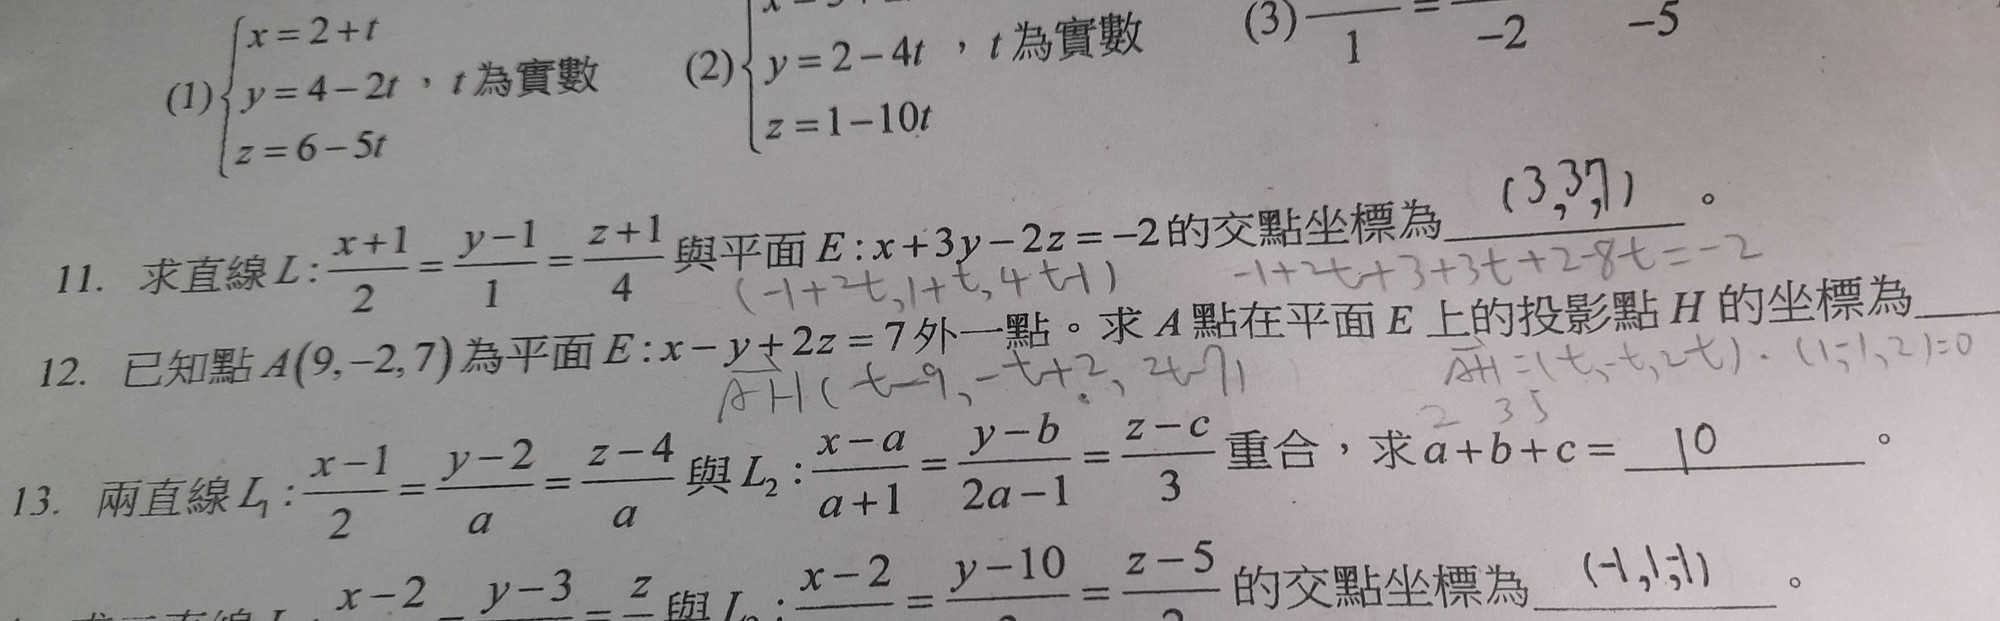 (1) { x=2+t
y=4-2t ，t為實數
z=6-5t
(2) { y=2-4t ，t為實數
z=1-10t
(3) 1 = -2 -5
11. 求直線L: (x+1)/2 = (y-1)/1 = (z+1)/4 與平面E: x+3y-2z=-2的交點坐標為 (3,3,7) 。
(-1+2t, 1+t, 4t-1) -1+2t+3+3t+2-8t=-2
12. 已知點A(9,-2,7)為平面E: x-y+2z=7外一點。求A點在平面E上的投影點H的坐標為
AH(t-9, -t+2, 2t-7) AH=(t,-t,2t)·(1,-1,2)=0
2 3 5
13. 兩直線L₁: (x-1)/2 = (y-2)/a = (z-4)/a 與L₂: (x-a)/(a+1) = (y-b)/(2a-1) = (z-c)/3 重合，求a+b+c= 10 。
x-2 = y-3 = z 與 L₂: x-2 = y-10 = z-5 的交點坐標為 (-1,1,-1) 。